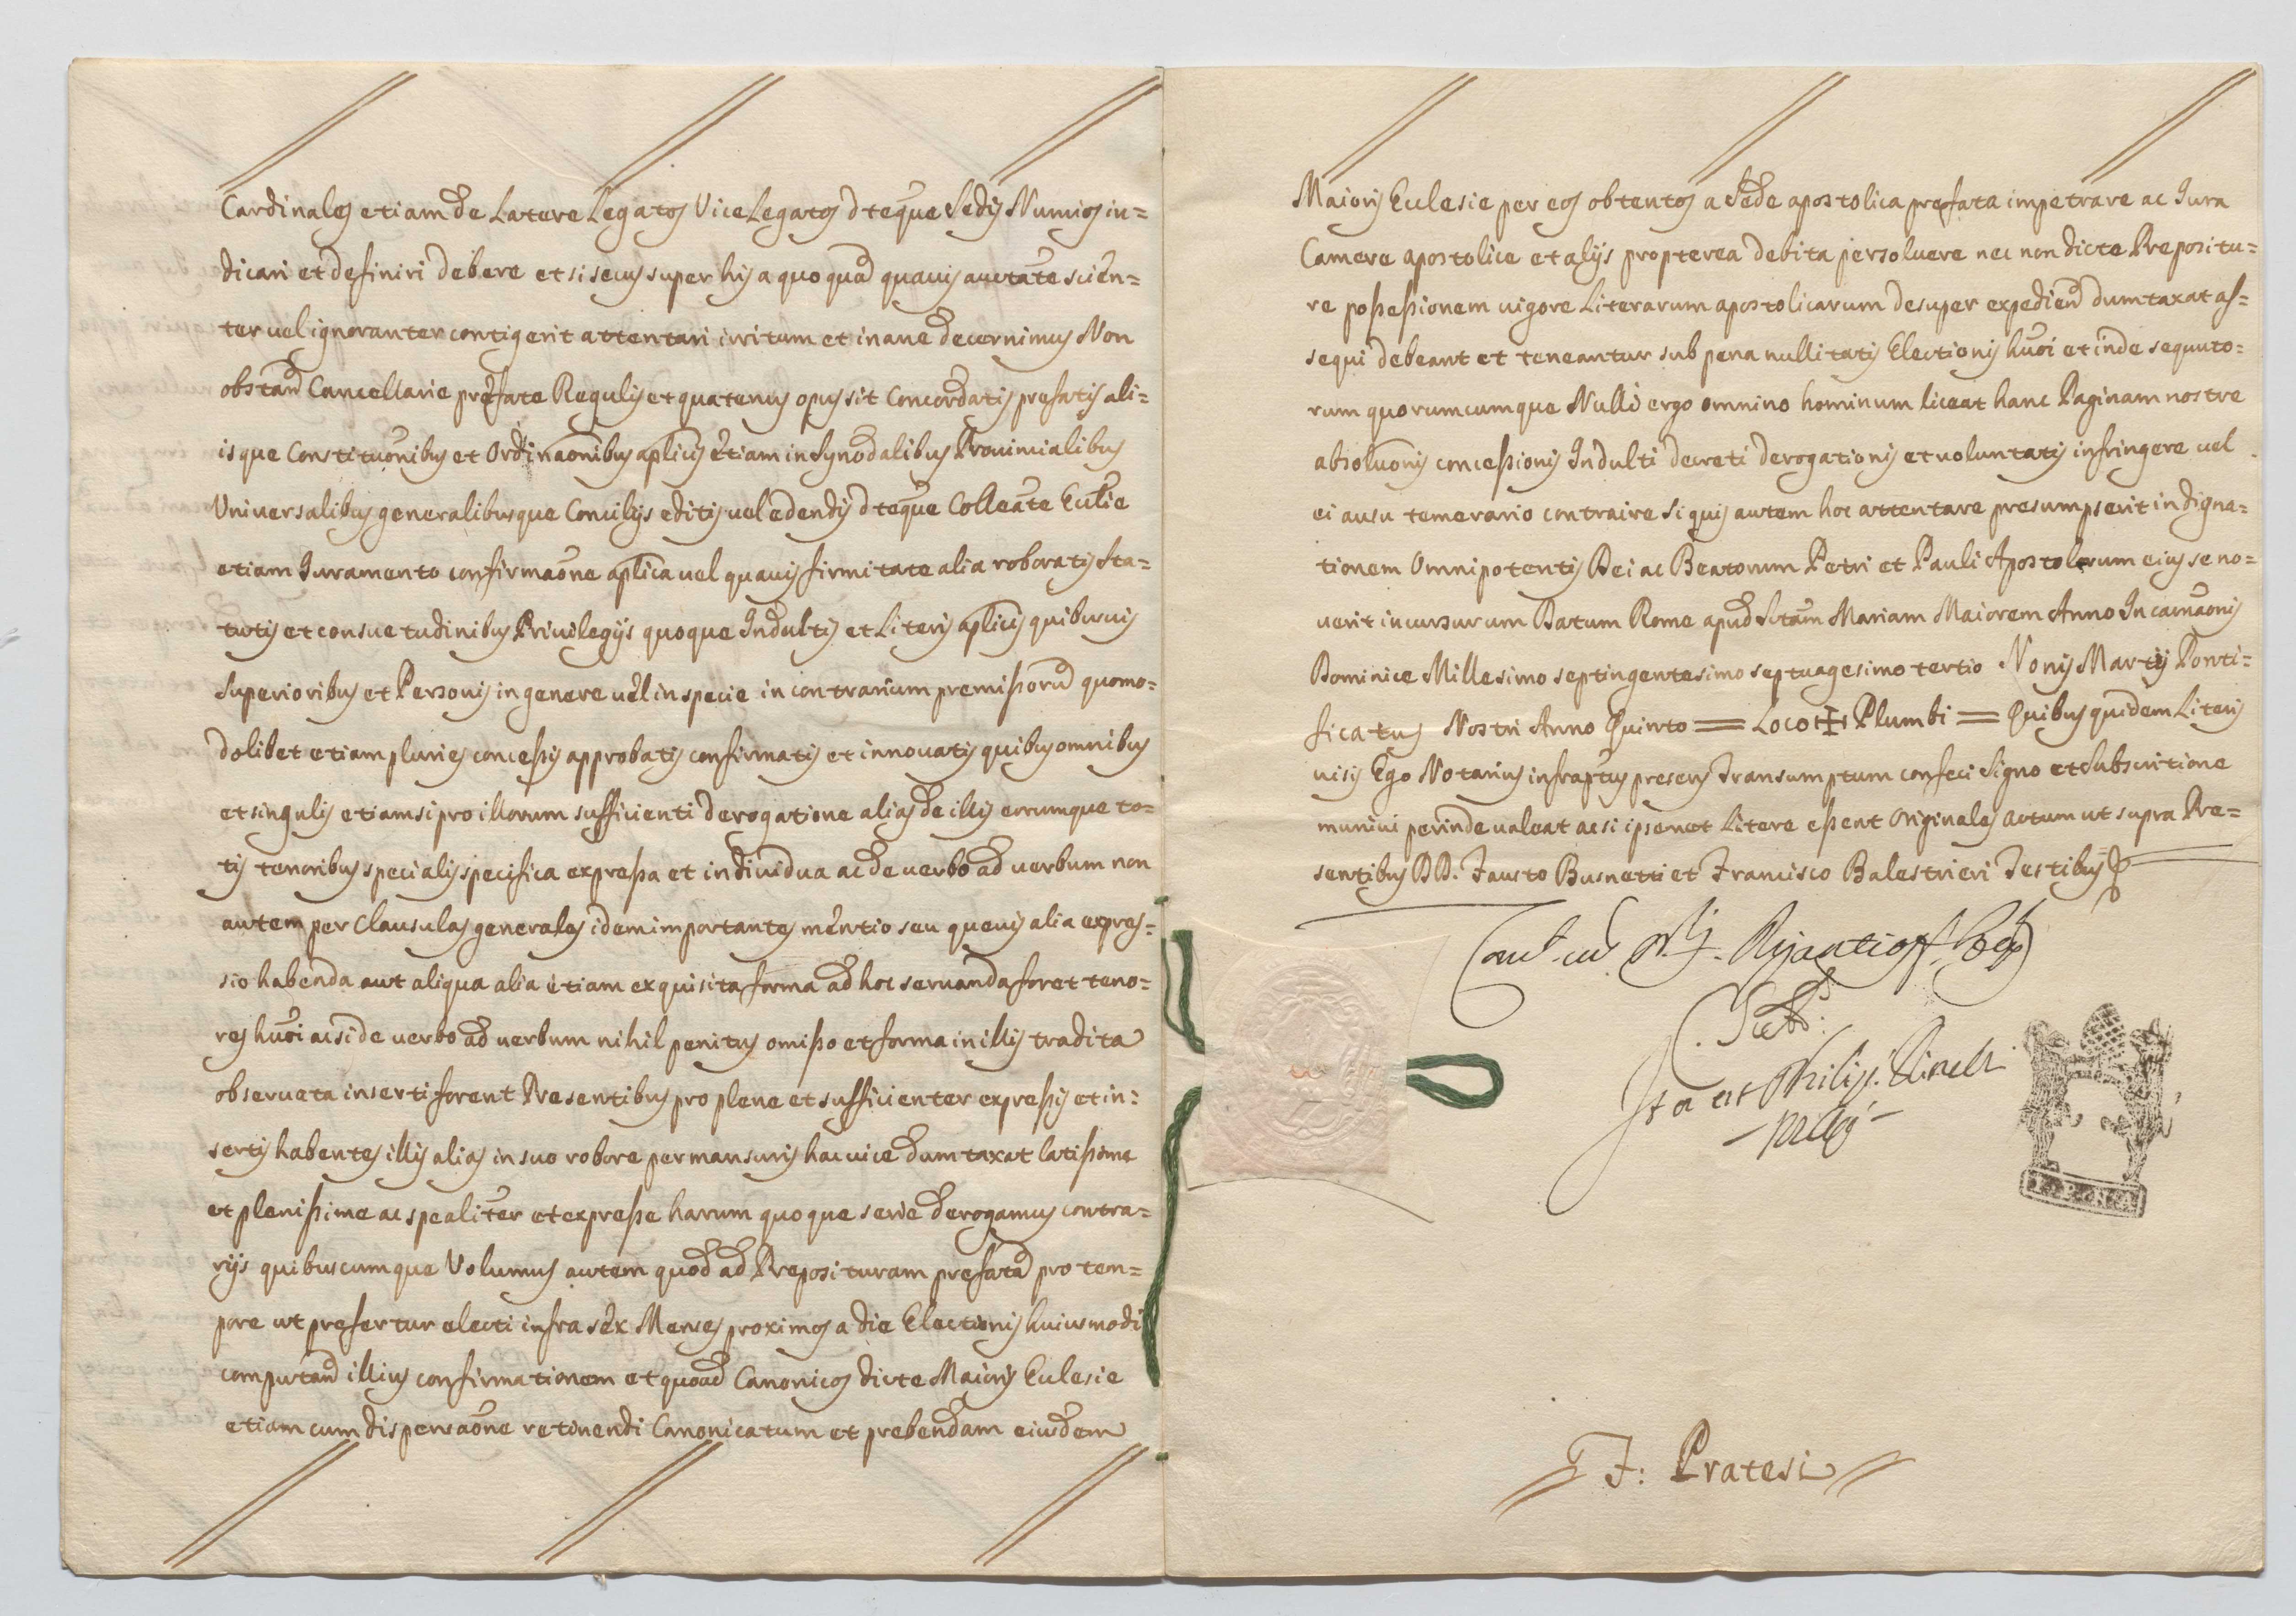 Cardinales etiam de Latere Legatos Vice Legatos dteque Sedis Nuncios in=
dicari et definiri debere et si secus super his a quoquad quavis auctate scien=
ter vel ignoranter contigerit attentari irritum et inane decernimus Non
obstand Cancellarie prefate Regulis et quatenus opus sit Concordatis prefatis ali=
isque Constituonibus et Ordinaonibus aplicis etiam in Synodalibus Provincialibus
Universalibus generalibusque Conciliis editis vel edendis dteque Colleate Eccliæ
etiam Iuramento confirmaone aplica vel quavis firmitate alia roboratis Sta=
tutis et consuetudinibus Privilegijs quoque Indultis et Literis aplicis quibusvis
Superioribus et Personis in genere vel in specie in contrarium premissord quomo=
dolibet etiam pluries concessis approbatis confirmatis et innovatis quibus omnibus
et singulis etiam si pro illorum sufficienti derogatione alias de illis eorumque to=
tis tenoribus specialis specifica expressa et individua ac de verbo ad verbum non
autem per Clausulas generales idem importantes mentio seu quevis alia expres=
sio habenda aut aliqua alia etiam exquisita forma ad hoc servanda foret teno=
res huoi ac si de verbo ad verbum nihil penitus omisso et forma in illis tradita
observata inserti forent Presentibus pro plene et sufficienter expressis et in=
sertis habentes illis alias in suo robore permansuris hac vice dumtaxat latissime
et plenissime ac spealiter et expresse harum quoque serie derogamus contra=
rijs quibuscumque Volumus autem quod ad Preposituram prefatad pro tem=
pore ut prefertur electi infra sex Menses proximos a die Electionis huiusmodi
computand illius confirmationem et quoad Canonicos dicte Maioris Eclesie
etiam cum dispensaone retinendi Canonicatum et prebendam eiusdem
Maioris Eclesie per eos obtentos a Sede apostolica prefata impetrare ac Iura
Camere apostolice et alijs propterea debita persolvere nec non dicte Prepositu=
re possessionem vigore Literarum apostolicarum desuper expediend dumtaxat as=
sequi debeant et teneantur sub pena nullitatis Electionis huoi et inde sequuto=
rum quorumcumque Nulli ergo omnino hominum liceat hanc Paginam nostre
absoluonis concessionis Indulti decreti derogationis et voluntatis infringere vel
ei ausu temerario contraire Si quis autem hoc attentare presumpserit indigna=
tionem Omnipotentis Dei ac Beatorum Petri et Pauli Apostolorum eius se no=
verit incursurum Datum Rome apud Sctam Mariam Maiorem Anno Incarnaonis
Dominice Millesimo septingentesimo septuagesimo tertio Nonis Martij Ponti=
ficatus Nostri Anno Quinto = Loco + Plumbi = Quibus quidem Literis
visis Ego Notarius infraptus presens Transumptum confeci Signo et Subscritione
munivi perinde valeat ac si ipsemet Litere essent Originales actum ut supra Pre=
sentibus DD. Fausto Busnetti et Francisco Balestrieri Testibus
Ita est Philip.
F: Pratesi